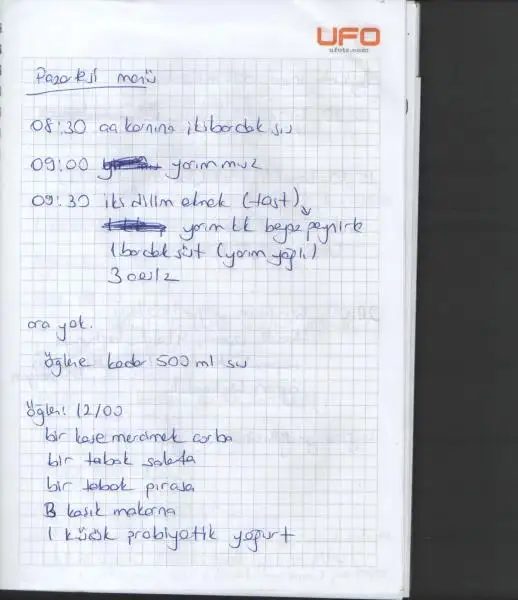 UFO
Pazartesi menü
08:30 aç karnına iki bardak su
09:00 yarım muz
09:30 iki dilim ekmek (tost)
yarım kk beyaz peynirle
1 bardak süt (yarım yağlı)
3 ceviz
ara yok.
öğlene kadar 500 ml su
öğlen 12/00
bir kase mercimek corba
bir tabak salata
bir tabak pırasa
B kasık makarna
1 küçük probiyotik yoğurt